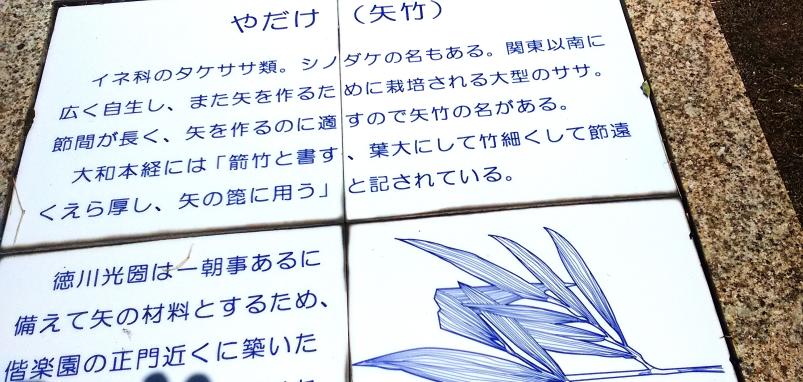 やだけ （矢竹）
イネ科のタケササ類。シノダケの名もある。関東以南に
広く自生し、また矢を作るために栽培される大型のササ。
節間が長く、矢を作るのに適すので矢竹の名がある。
大和本経には「箭竹と書す、葉大にして竹細くして節遠
くえら厚し、矢の箆に用う」と記されている。
徳川光圀は一朝事あるに
備えて矢の材料とするため、
偕楽園の正門近くに築いた